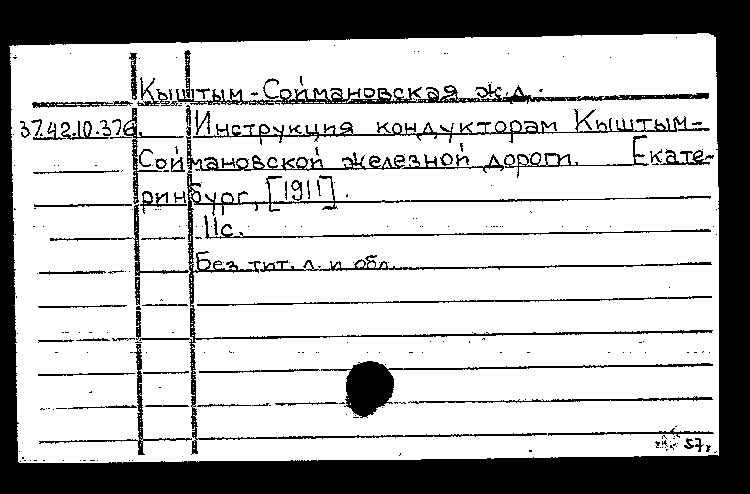 Кыштым-Соймановская ж.д.
37.42.10.376. Инструкция кондукторам Кыштым-
Соймановской железной дороги. Екате-
ринбург, [1911].
11с.
Без тит. л. и обл.
57г